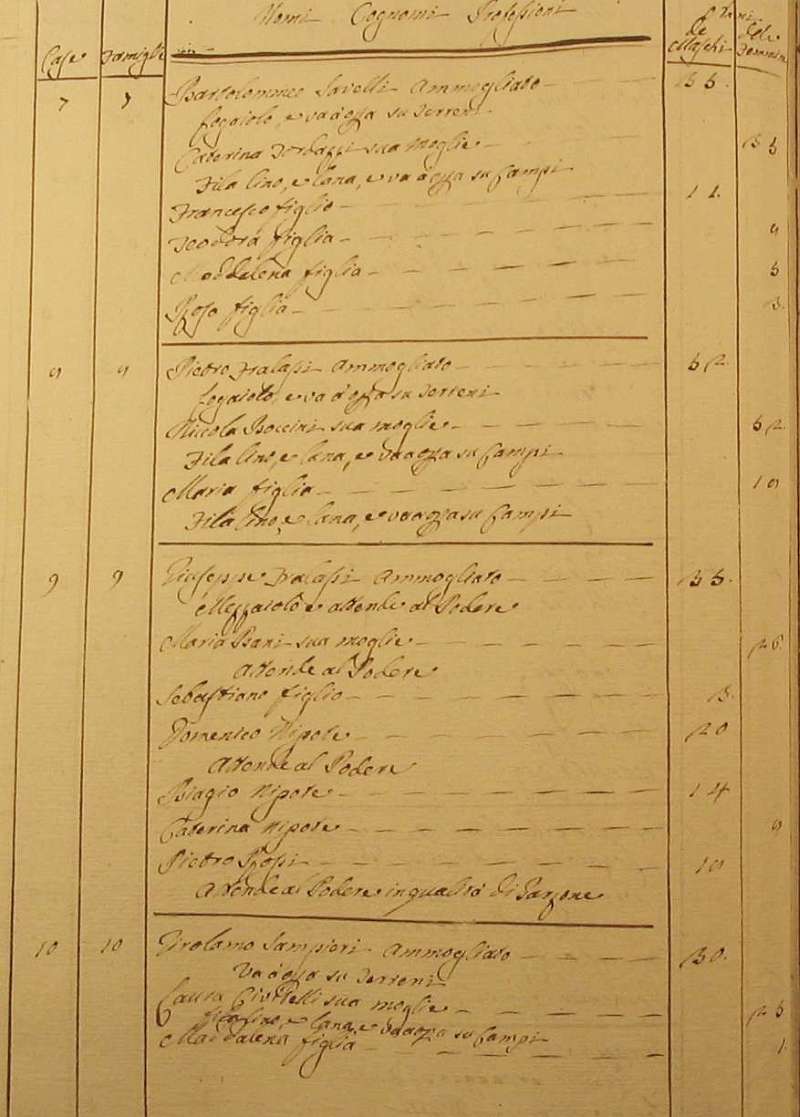 Nomi Cognomi Professioni
Case Famiglie de Maschi delle Femmin
7 7 Bartolommeo Savelli Ammogliato 35.
Logaiolo, e va a opra su Terreni
Caterina sua moglie 35
Fila lino, e lana, e va a opra su Campi
Francesco figlio 11.
Teodora figlia 9
Maddalena figlia 5
Rosa figlia 3.
Pietro Fralassi Ammogliato 52.
Logaiolo, e va a opra su Terreni
Niccola Boccini sua moglie 52.
Fila lino, e lana, e va a opra su Campi
Maria figlia
Fila lino, e lana, e va a opra su Campi
9 9 Giuseppe Fralassi Ammogliato 35.
Mezzaiolo e attende al Podere
Maria Bani sua moglie 26.
Attende al Podere
Sebastiano figlio 3.
Domenico Nipote 20
Attende al Podere
Biagio Nipote 14
Caterina Nipote 9
Pietro Rossi
Attende al Podere in qualità di Garzone
10 10 Girolamo Sampieri Ammogliato 30.
Va a opra su Terreni
Laura Civitelli sua moglie 25
Fila lino, e lana, e va a opra su Campi
Maddalena figlia 1.